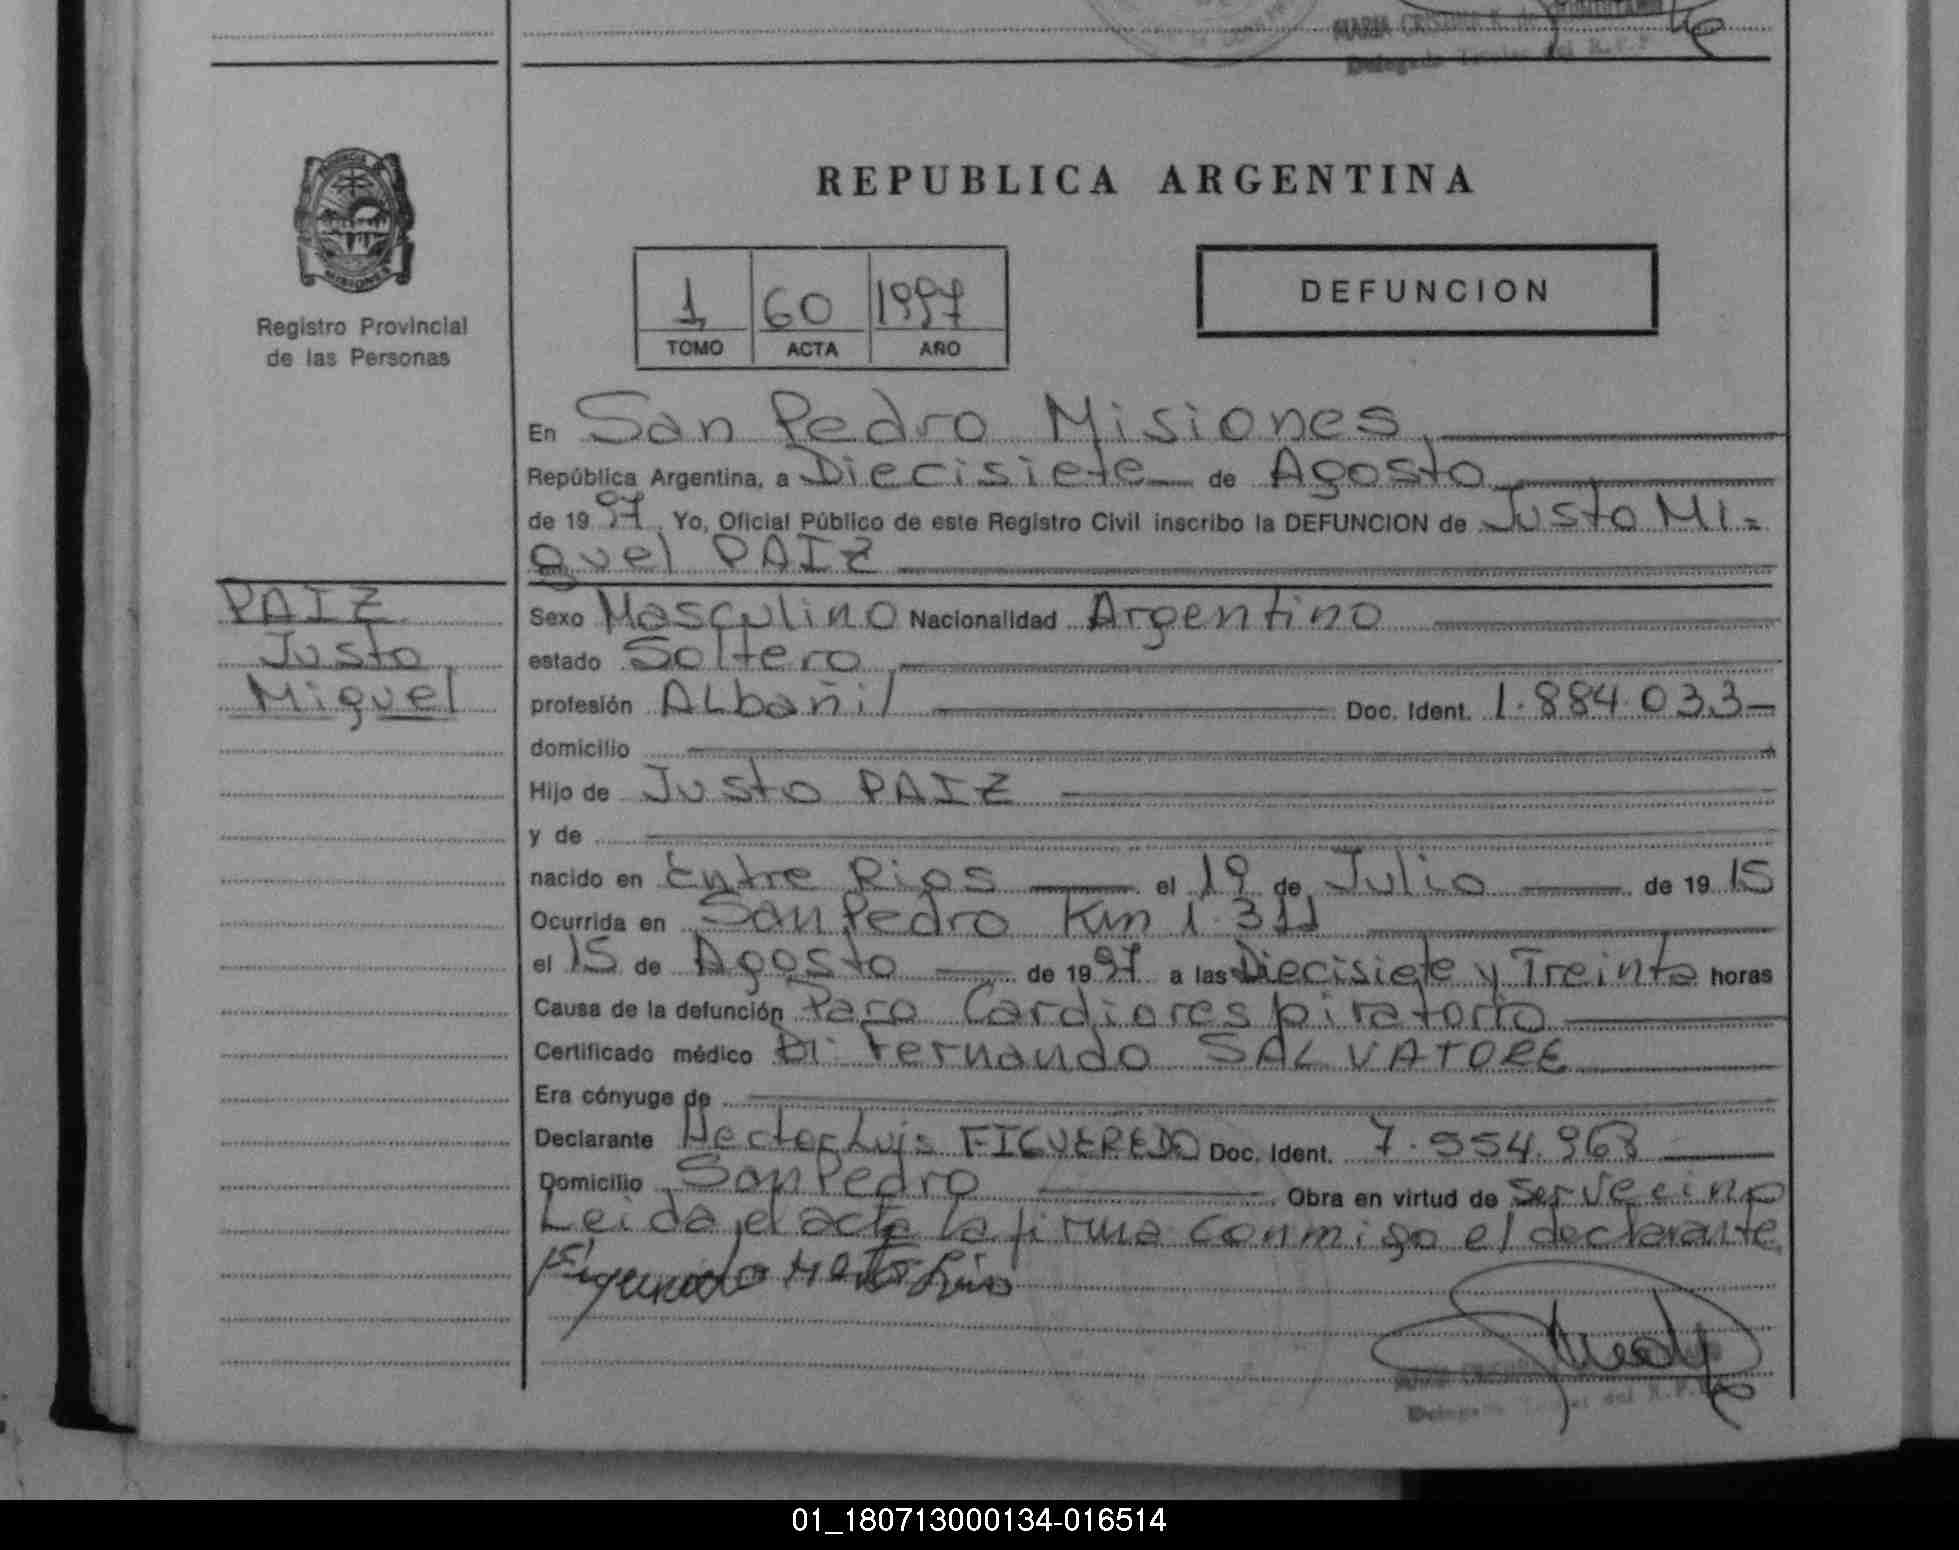 MARIA CRISTINA K. de
Delegado Titular del R.P.P
PROVINCIA DE
MISIONES
Registro Provincial
de las Personas
REPUBLICA ARGENTINA
1 60 1997
TOMO ACTA AÑO
DEFUNCION
En San Pedro Misiones
República Argentina, a Diecisiete de Agosto
de 1997. Yo, Oficial Público de este Registro Civil inscribo la DEFUNCION de Justo Mi=
guel PAIZ
PAIZ
Justo
Miguel
Sexo Masculino Nacionalidad Argentino
estado Soltero
profesión ALbañil Doc. Ident. 1.884.033
domicilio
Hijo de Justo PAIZ
y de
nacido en Entre Rios el 19 de Julio de 1915
Ocurrida en San Pedro Km 1.311
el 15 de Agosto de 1997 a las Diecisiete y Treinta horas
Causa de la defunción Paro Cardiorespiratorio
Certificado médico Dr. Fernando SALVATORE
Era cónyuge de
Declarante Hector Luis FIGUEREDO Doc. Ident. 7.554.963
Domicilio San Pedro Obra en virtud de ser vecino
Leida el acta la firma conmigo el declarante
Figueredo Hector Luis
Delegado Titular del R.P.
01_180713000134-016514